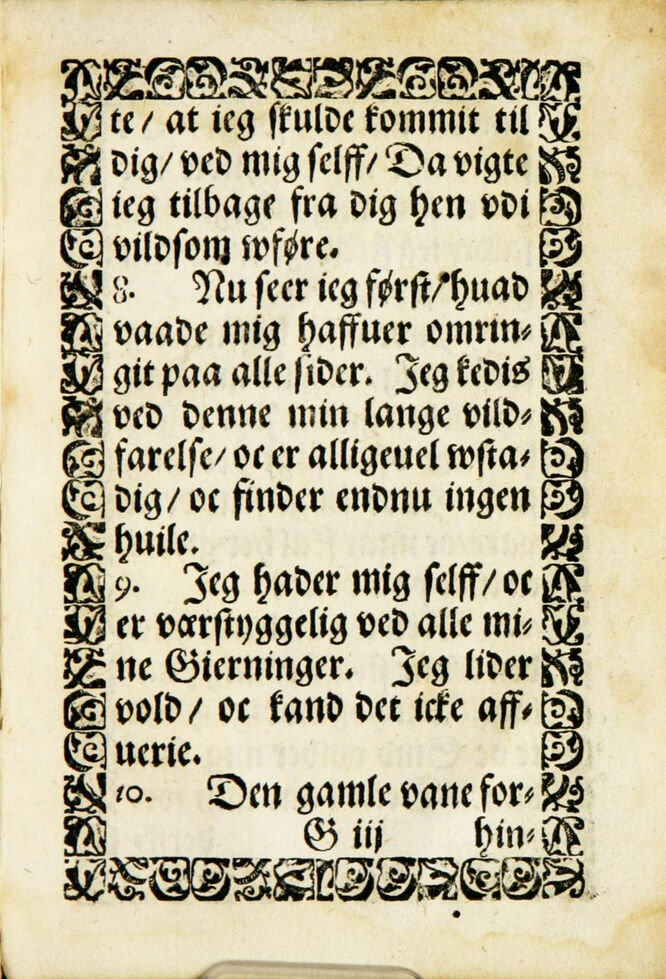 te/ at ieg skulde kommit til
dig/ ved mig selff/ Da vigte
ieg tilbage fra dig hen vdi
vildsom wføre.
8. Nu seer ieg først/ huad
vaade mig haffuer omrin-
git paa alle sider. Jeg kedis
ved denne min lange vild-
farelse/ oc er alligeuel wsta-
dig/ oc finder endnu ingen
huile.
9. Jeg hader mig selff/ oc
er værstyggelig ved alle mi-
ne Gierninger. Jeg lider
vold/ oc kand det icke aff-
uerie.
10. Den gamle vane for-
G iij hin-